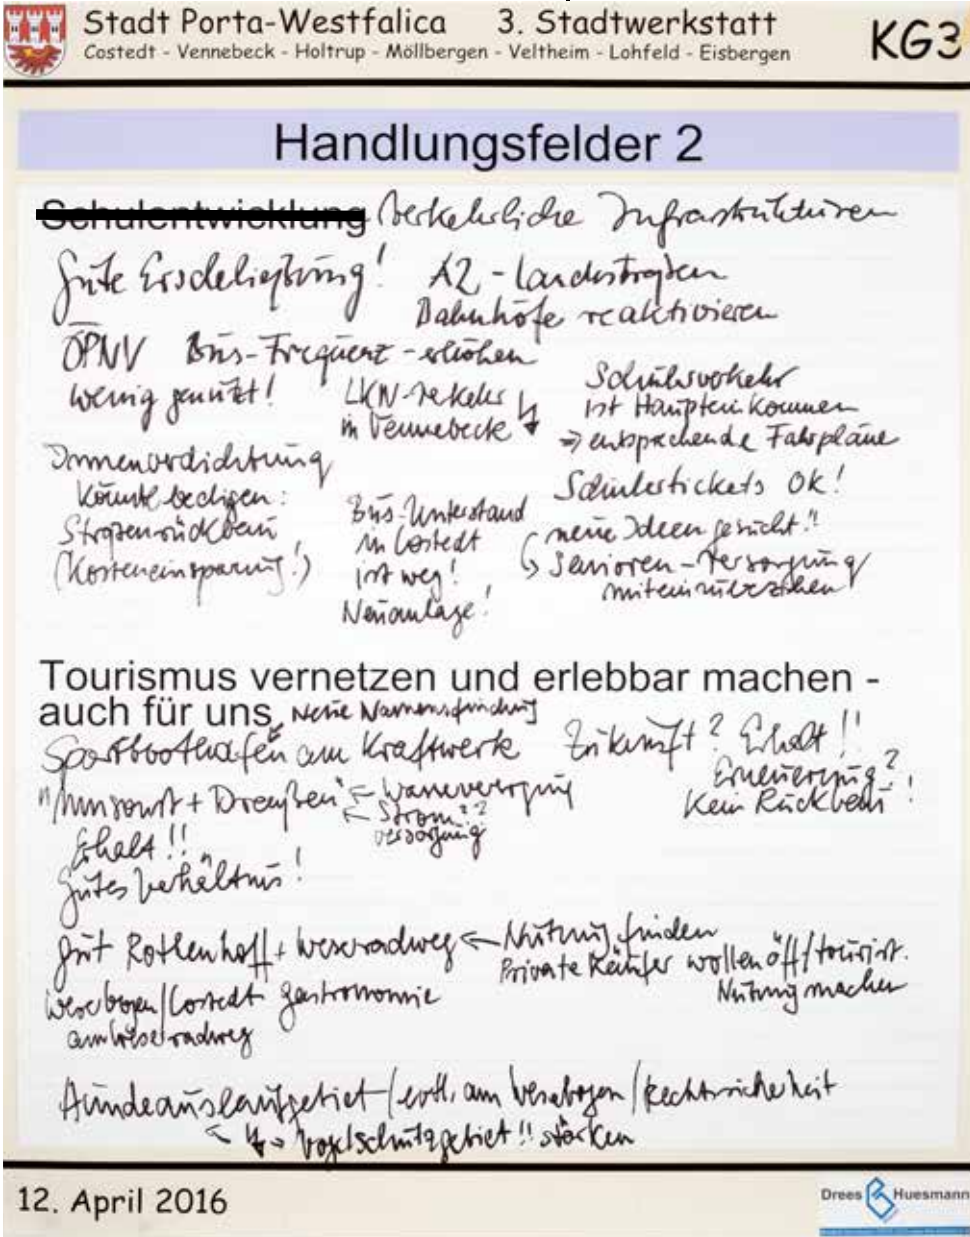 Stadt Porta-Westfalica 3. Stadtwerkstatt
Costedt - Vennebeck - Holtrup - Möllbergen - Veltheim - Lohfeld - Eisbergen
KG3
Handlungsfelder 2
Schulentwicklung Verkehrliche Infrastrukturen
Gute Erschließung! A2 - Landestraßen
Bahnhöfe reaktivieren
ÖPNV Bus-Frequenz - erhöhen
wenig genutzt!
LKW-Verkehr
in Vennebeck
Schülerverkehr
ist Haupteinkommen
=> entsprechende Fahrpläne
Schülertickets Ok!
neue Ideen gesucht!!
Senioren-Versorgung
mit einzubeziehen
Innenverdichtung
könnte
Straßenrückbau
(Kosteneinsparung!)
Bus-Unterstand
in Costedt
ist weg!
Neuanlage!
Tourismus vernetzen und erlebbar machen -
auch für uns
Neue Namensfindung
Sportboothafen am Kraftwerk Zukunft? Erhalt!!
Erneuerung?
Kein Rückbau!
"Umsonst + Draußen"
Strom??
versorgung
Erhalt!!
Gutes Verhältnis!
Gut Rothenhoff + Weserradweg <- Nutzung finden
Private Käufer wollen öff/tourist.
Nutzung machen
Weserbogen/Costedt Gastronomie
am Weserradweg
Hundeauslaufgebiet/evtl. am Weserbogen/Rechtssicherheit
Vogelschutzgebiet!! stärken
12. April 2016
Drees Huesmann